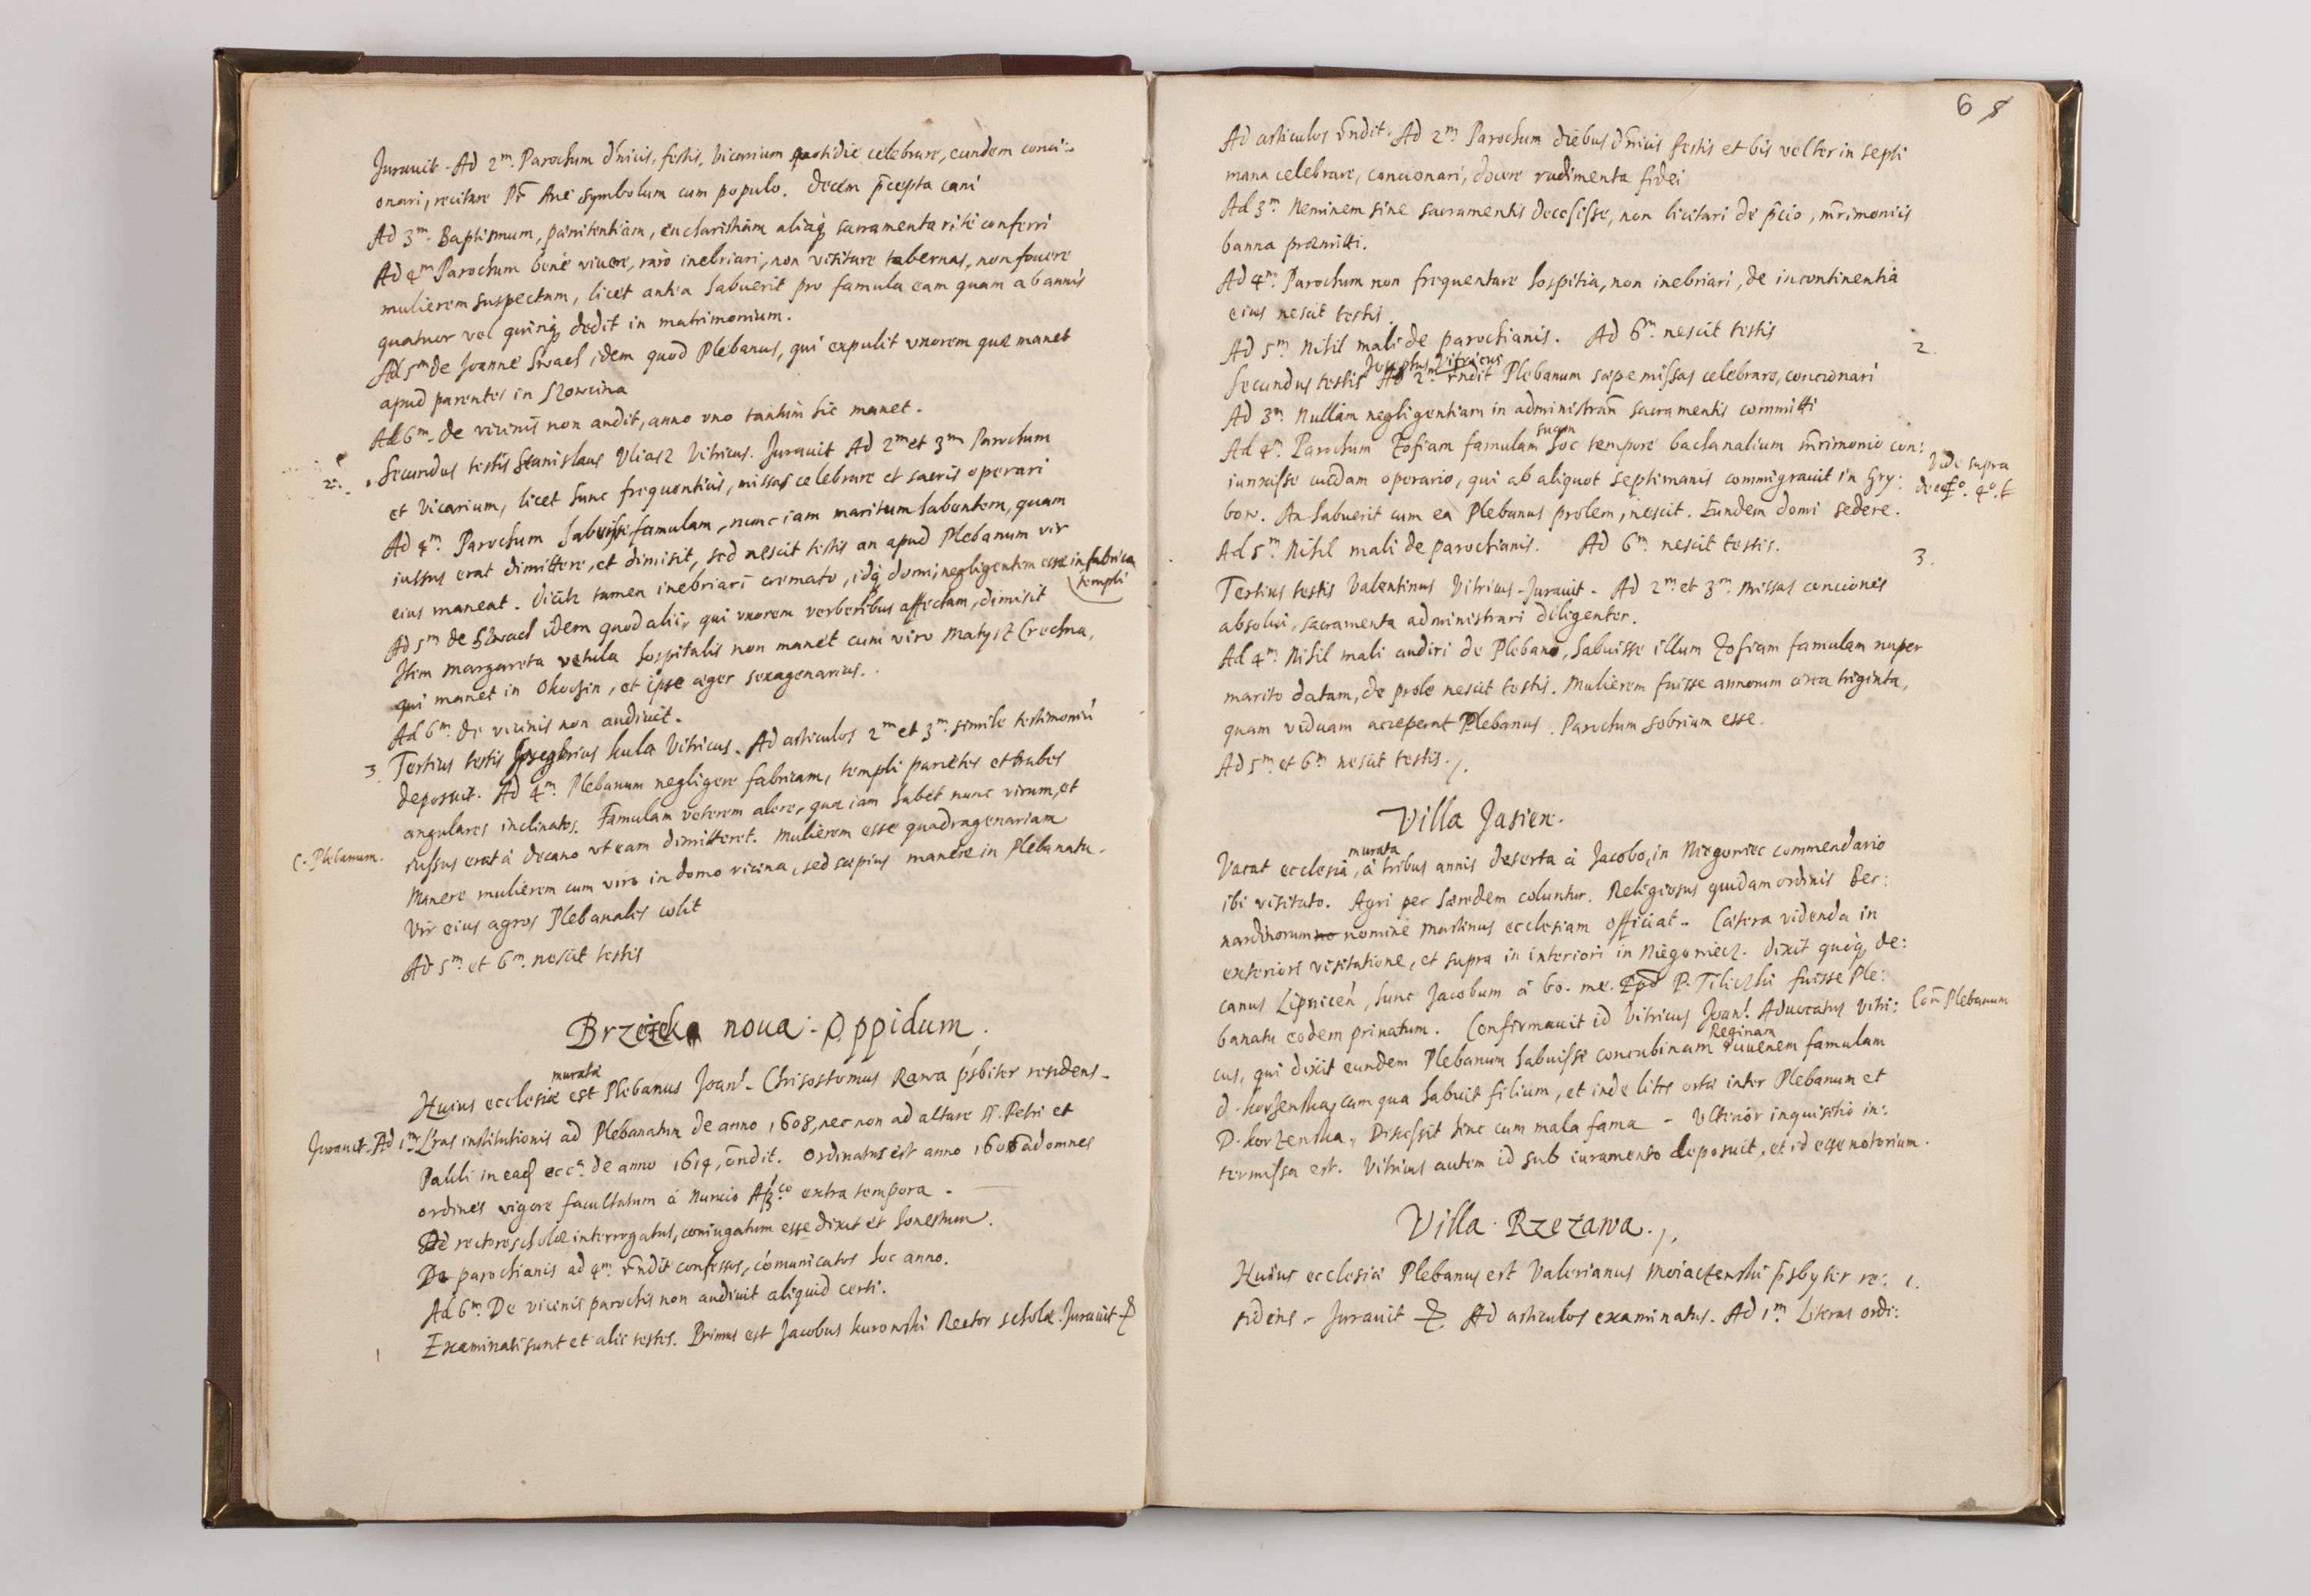 Jurauit. Ad 2m. Parochum dnicis, festis, Vicarium quotidie celebrare, eundem conci:
onari, recitare Pr Aue symbolum cum populo. decem pcepta cani
Ad 3m. Baptismum, pœnitentiam, eucharistiam aliaq sacramenta rite conferri
Ad 4m Parochum bene viuere, raro inebriari, non visitare tabernas, non fouere
mulierem suspectam, licet antea habuerit pro famula eam quam ab annis
quatuor vel quinq dedit in matrimonium.
Ad 5m de Joanne idem quod Plebanus, qui expulit vxorem quæ manet
apud parentes in
Ad 6m. de vicinis non audit, anno vno tantum hic manet.
2. Secundus testis Stanislaus Vliasz Vitricus. Jurauit Ad 2m et 3m Parochum
et Vicarium, licet hunc frequentius, missas celebrare et sacris operari
Ad 4m. Parochum habuisse famulam, nunc iam maritum habentem, quam
iussus erat dimittere, et dimisit, sed nescit testis an apud Plebanum vir
eius maneat. Dicit tamen inebriari cremato, idq domi, negligentem esse in fabrica
templi
Ad 5m de idem quod alii, qui vxorem verberibus affectam, dimisit
Item Margareta vetula hospitalis non manet cum viro Matysz Crechna,
qui manet in Okochin, et ipse æger sexagenarius.
Ad 6m. de vicinis non audiuit.
3. Tertius testis Gregorius kula Vitricus. Ad articulos 2m et 3m. simile testimoniu
deposuit. Ad 4m. Plebanum negligere fabricam, templi parietes et trabes
angulares inclinatos. Famulam veterem alere, quæ iam habet nunc virum, et
C. Plebanum. iussus erat à decano vt eam dimitteret. Mulierem esse quadragenariam
Manere mulierem cum viro in domo vicina, sed sæpius manere in Plebanatu.
Vir eius agros Plebanales colit
Ad 5m. et 6m. nescit testis
Brzezka noua. Oppidum.
murata
Huius ecclesiæ est Plebanus Joan. Chrisostomus Rawa psbiter residens.
Jurauit. Ad 1m. Lras institutionis ad Plebanatum de anno 1608, nec non ad altare SS. Petri et
Pauli in ead ecca. de anno 1614, ondit. Ordinatus est anno 1606 ad omnes
ordines vigore facultatum à Nuncio Apco extra tempora.
De rectore scholæ interrogatus, coniugatum esse dixit et honestum.
De parochianis ad 4m. rndit confessos, comunicatos hoc anno.
Ad 6m. De vicinis parochis non audiuit aliquid certi.
1 Examinati sunt et alii testes. Primus est Jacobus kurowski Rector scholæ. Jurauit
6 8
Ad articulos rndit. Ad 2m. Parochum diebus dnicis festis et bis vel ter in septi
mana celebrare, concionari, docere rudimenta fidei
Ad 3m. Neminem sine sacramentis decessisse, non licitari de pcio, mrimoniis
banna præmitti.
Ad 4m. Parochum non frequentare hospitia, non inebriari, de incontinentia
eius nescit testis.
Ad 5m. Nihil mali de parochianis. Ad 6m. nescit testis
2.
Josephus Vitricus
Secundus testis Ad 2m. rndit Plebanum sæpe missas celebrare, concionari
Ad 3m. Nullam negligentiam in administran sacramentis committi
suam
Ad 4m. Parochum Zofiam famulam hoc tempore bachanalium mrimonio con:
iunxisse cuidam operario, qui ab aliquot septimanis commigrauit in Gry:
Vide supra
de eo fo. 4o.
bow. An habuerit cum ea Plebanus prolem, nescit. Eundem domi sedere.
Ad 5m. Nihil mali de parochianis. Ad 6m. nescit testis.
3.
Tertius testis Valentinus Vitricus. Jurauit. Ad 2m. et 3m. Missas conciones
absolui, sacramenta administrari diligenter.
Ad 4m. Nihil mali audiri de Plebano, habuisse illum Zofiam famulam nuper
marito datam, de prole nescit testis. Mulierem fuisse annorum circa triginta,
quam viduam acceperat Plebanus. Parochum sobrium esse.
Ad 5m. et 6m nescit testis.
Villa Jasien.
murata
Vacat ecclesia, à tribus annis deserta à Jacobo, in Niegowiec commendario
ibi visitato. Agri per hæredem coluntur. Religiosus quidam ordinis Ber:
nardinorum no nomine Martinus ecclesiam officiat. Cætera videnda in
exteriore visitatione, et supra in interiori in Niegowiecz. Dixit quoq de:
canus Lipnicen, hunc Jacobum à bo. me. Epo P. Tiliczki fuisse Ple:
banatu eodem priuatum. Confirmauit id Vitricus Joan. Aduocatus Vitri: Con Plebanum
Reginam
cus, qui dixit eundem Plebanum habuisse concubinam iuuenem famulam
d. korzenska, cum qua habuit filium, et inde lites ortæ inter Plebanum et
D. korzenska, Discessit hinc cum mala fama. Vlterior inquisitio in:
termissa est. Vitricus autem id sub iuramento deposuit, et id esse notorium.
Villa Rzezawa.
Huius ecclesiæ Plebanus est Valerianus psbyter re: 1.
sidens. Jurauit Ad articulos examinatus. Ad 1m. Literas ordi: